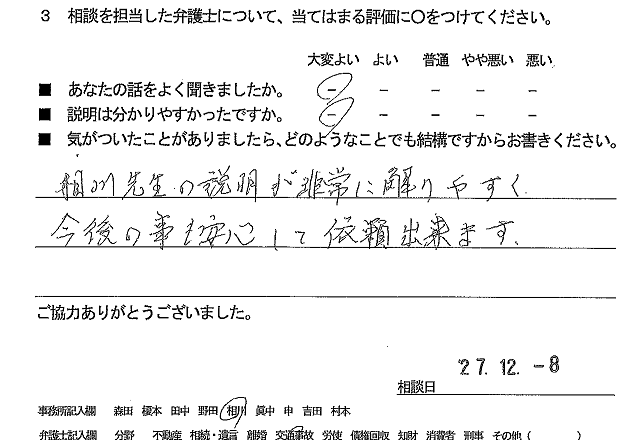 3 相談を担当した弁護士について、当てはまる評価に○をつけてください。
大変よい よい 普通 やや悪い 悪い
■ あなたの話をよく聞きましたか。 - - - - -
■ 説明は分かりやすかったですか。 - - - - -
■ 気がついたことがありましたら、どのようなことでも結構ですからお書きください。
相川先生の説明が非常に解りやすく
今後の事も安心して依頼出来ます。
ご協力ありがとうございました。
相談日 '27.12.-8
事務所記入欄 森田 榎本 田中 野田 相川 眞中 申 吉田 村本
弁護士記入欄 分野 不動産 相続・遺言 離婚 交通事故 労使 債権回収 知財 消費者 刑事 その他( )